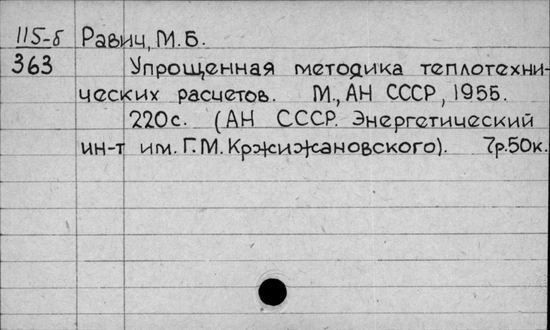 115-б Равич, М.Б.
363 Упрощенная методика теплотехни-
ческих расчетов. М., АН СССР, 1955.
220с. (АН СССР. Энергетический
ин-т им. Г.М. Кржижановского). 7р.50к.